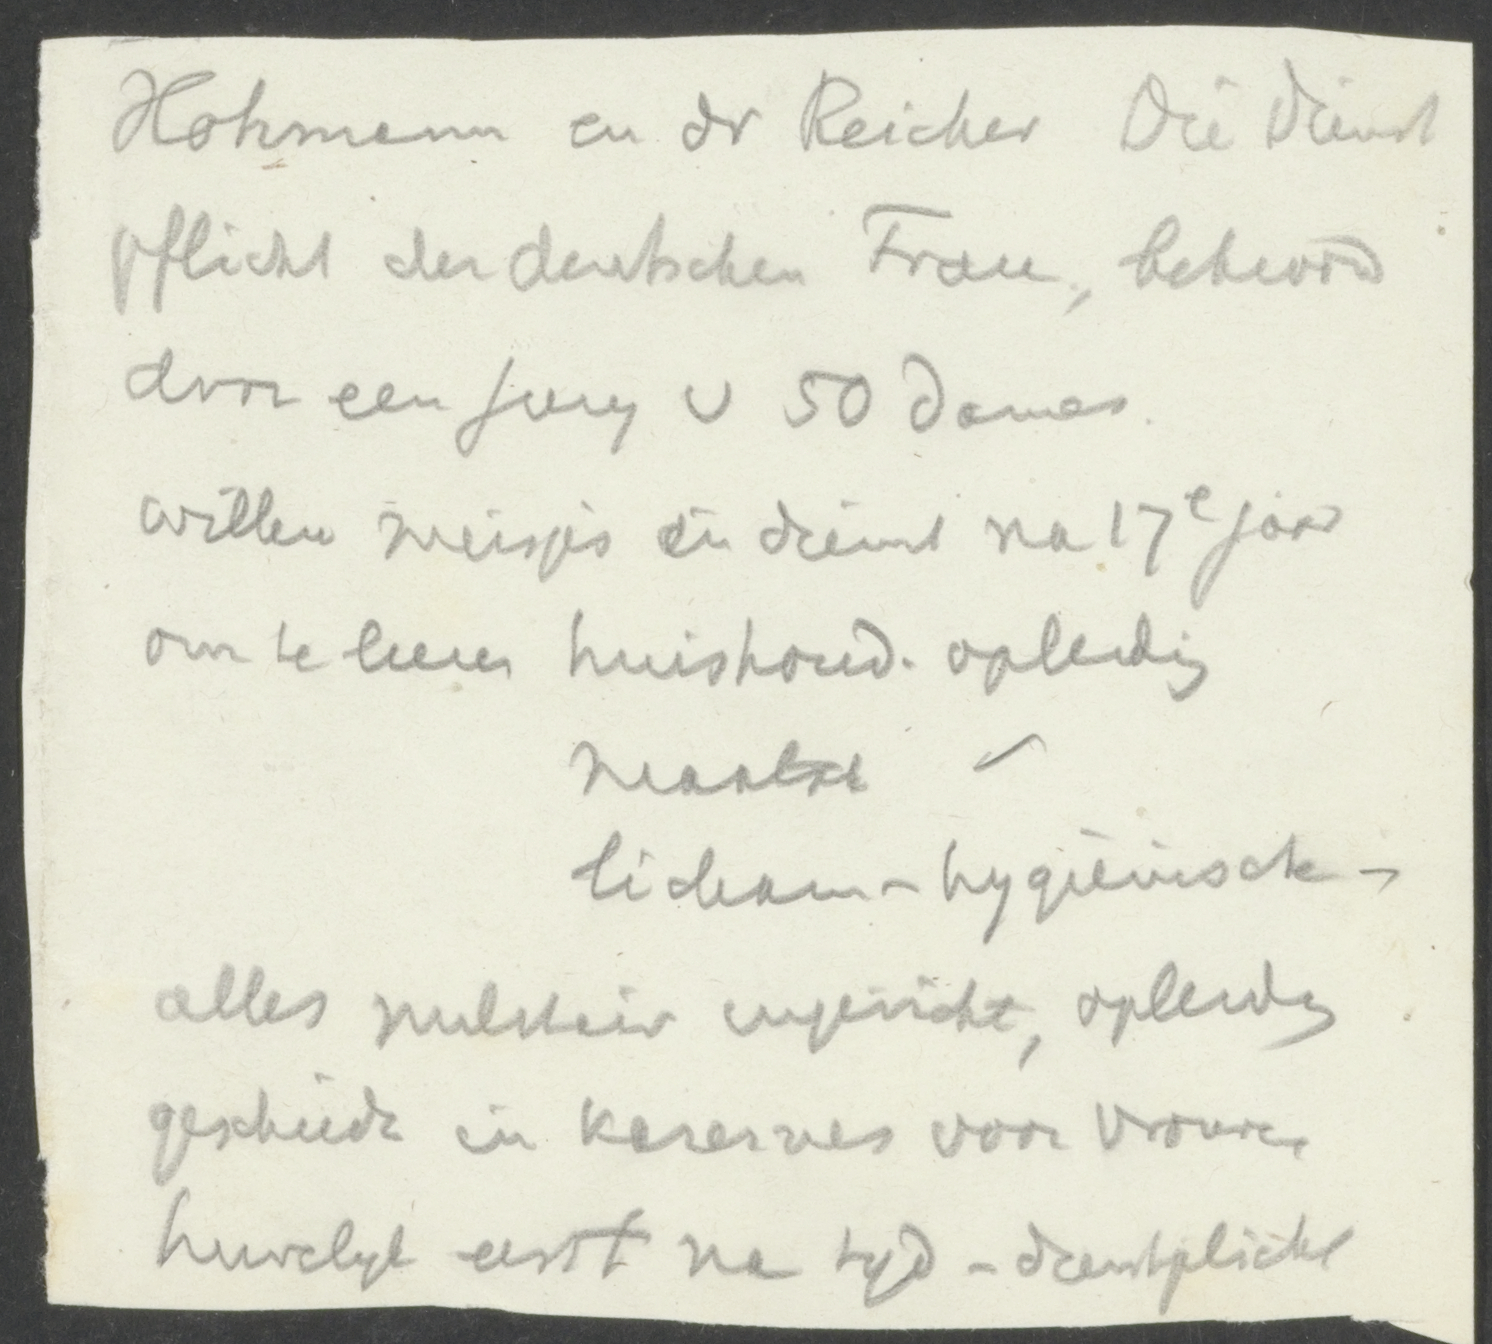 Hohmann en dr Reicher Die Dienst
pflicht der deutschen Frau, bekroond
door een jury v 50 dames.
willen meisjes in dienst na 17e jaar
om te leeren huishoud. opleidig
maatsch
licham - hygiënische -
alles militair ingericht, opleidg
geschiedt in kazernes voor vrouwen
huwelyk eerst na tyd - dienstplicht